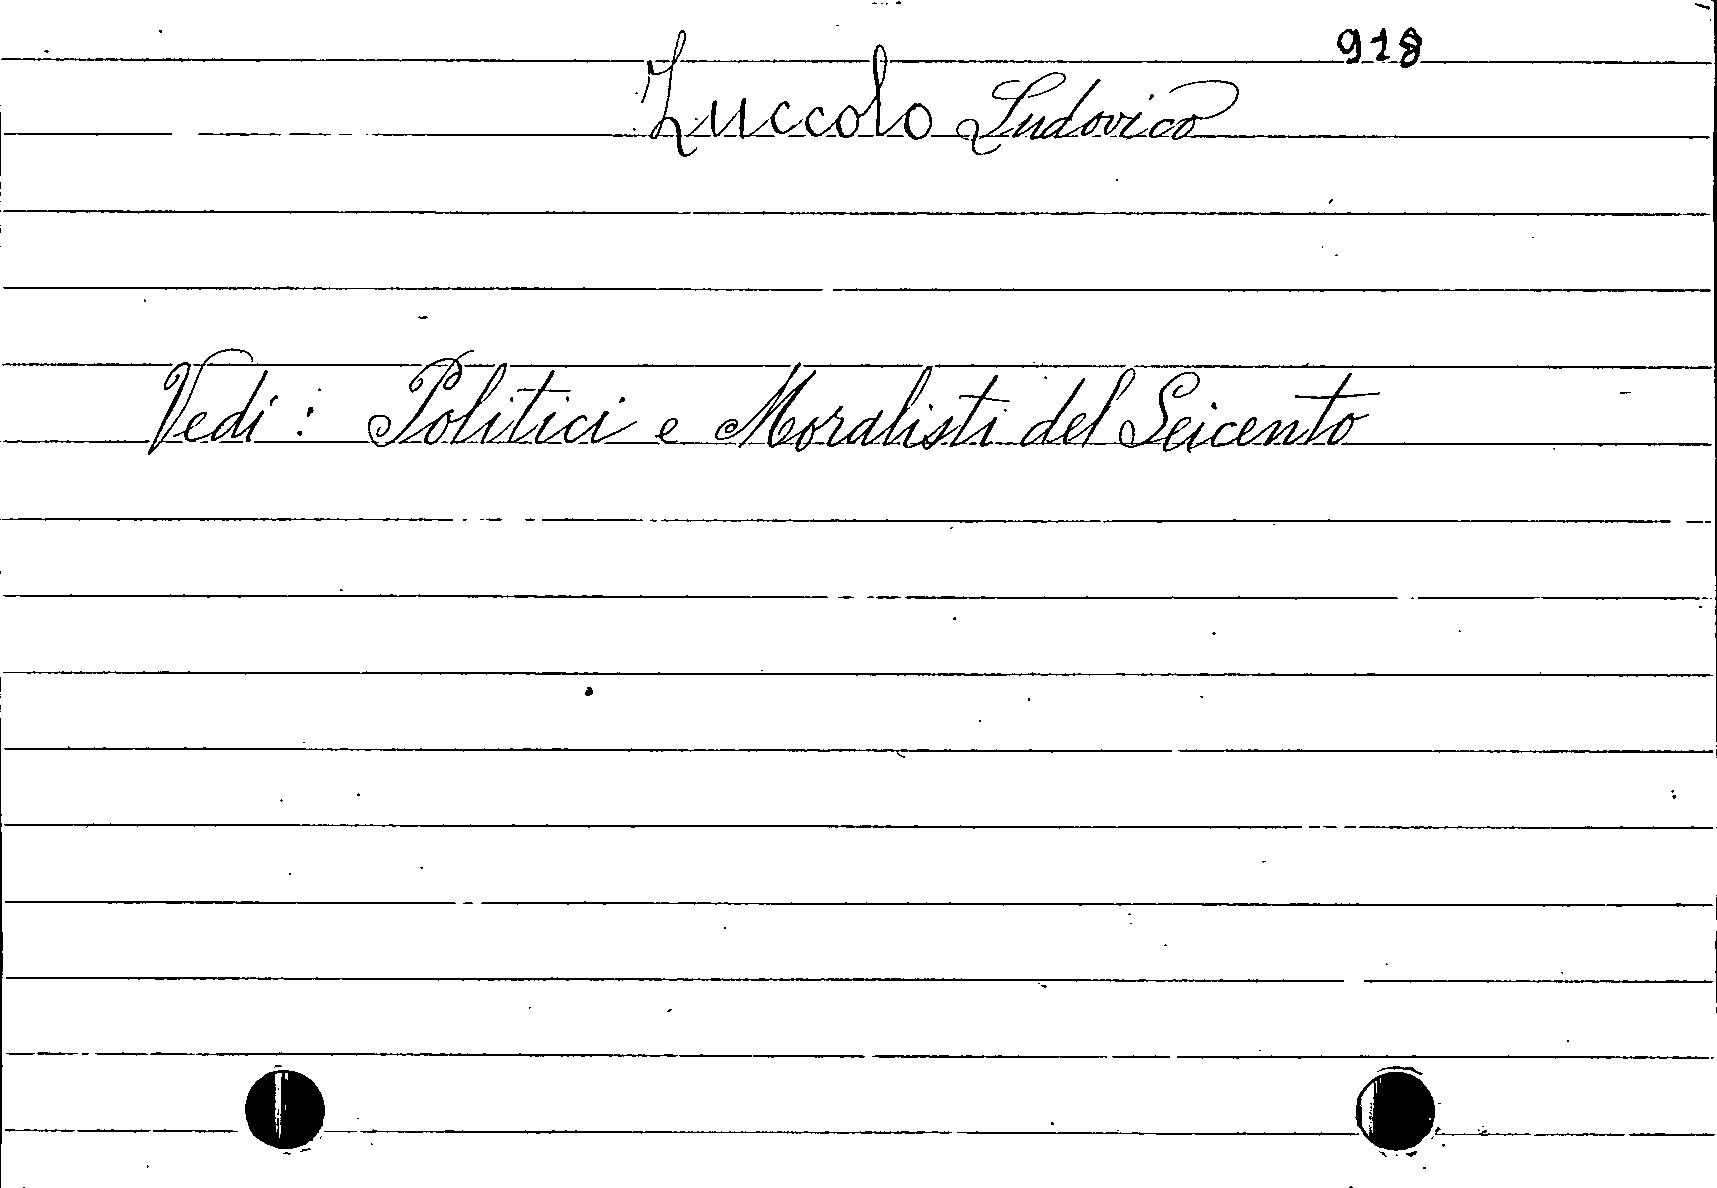 918
Zuccolo Ludovico
Vedi: Politici e Moralisti del Seicento